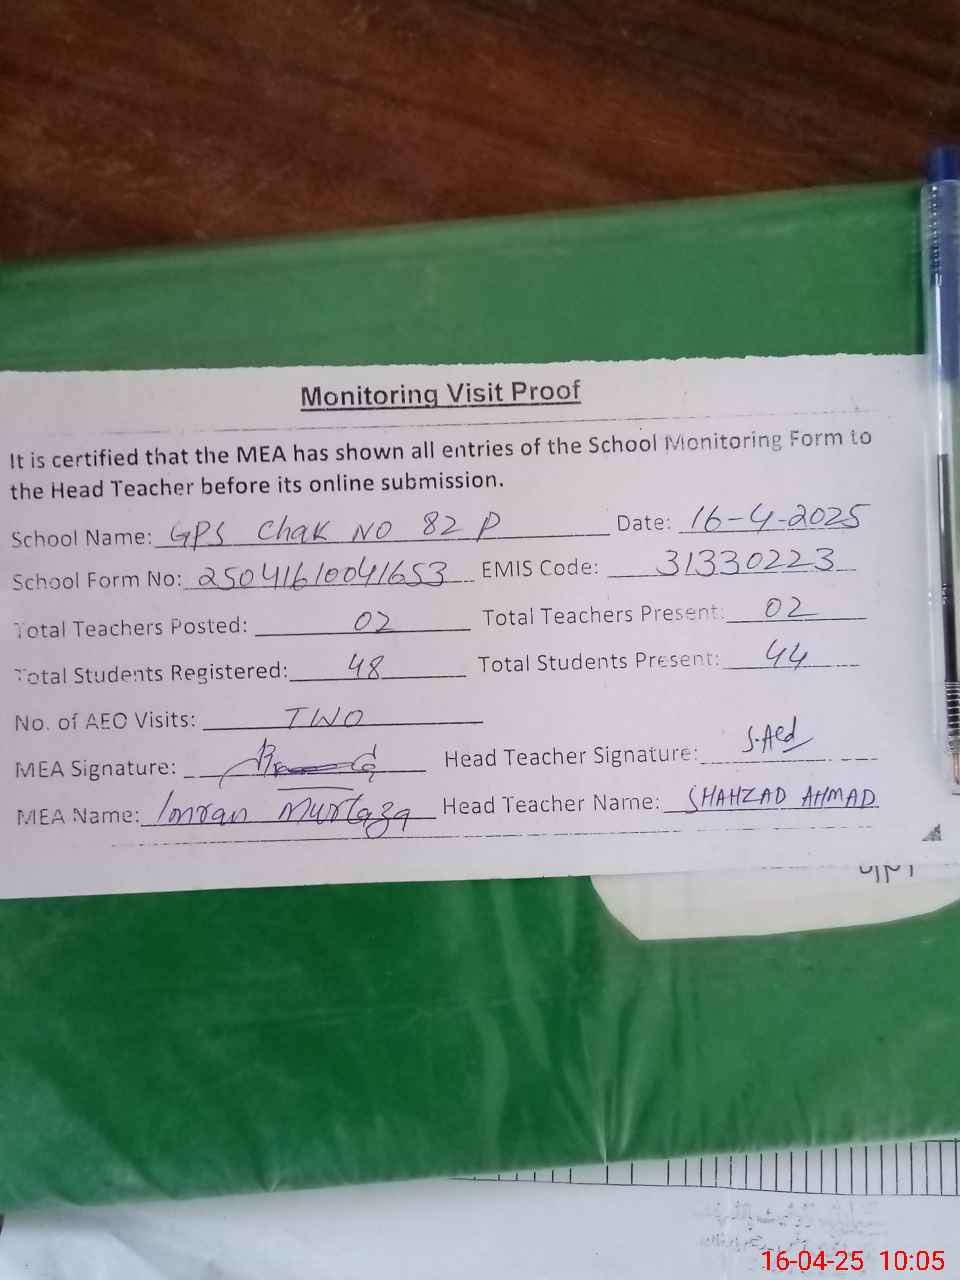 Monitoring Visit Proof
It is certified that the MEA has shown all entries of the School Monitoring Form to
the Head Teacher before its online submission.
School Name: GPS Chak NO 82 P Date: 16-4-2025
School Form No: 25041610041653 EMIS Code: 31330223
Total Teachers Posted: 02 Total Teachers Present: 02
Total Students Registered: 48 Total Students Present: 44
No. of AEO Visits: TWO
MEA Signature: Head Teacher Signature:
MEA Name: Imran Murtaza Head Teacher Name: SHAHZAD AHMAD
16-04-25 10:05